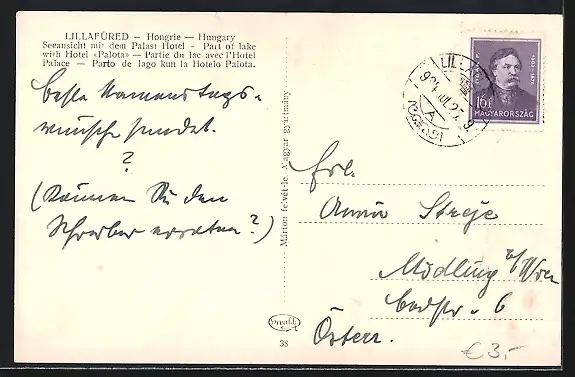 LILLAFÜRED — Hongrie — Hungary
Seeansicht mit dem Palast Hotel - Part of lake
with Hotel «Palota» — Partie du lac avec l'Hotel
Palace — Parto de lago kun la Hotelo Palota.
beste Namenstags-
wünsche sendet.
?
(Können Sie den
Schreiber erraten?)
Márton felvét-le. Magyar gyártmány
38
16f
MAGYARORSZÁG
A
Frl.
Anna Streje
Mödling b/Wien
Badstr. 6
Österr.
€ 3,-